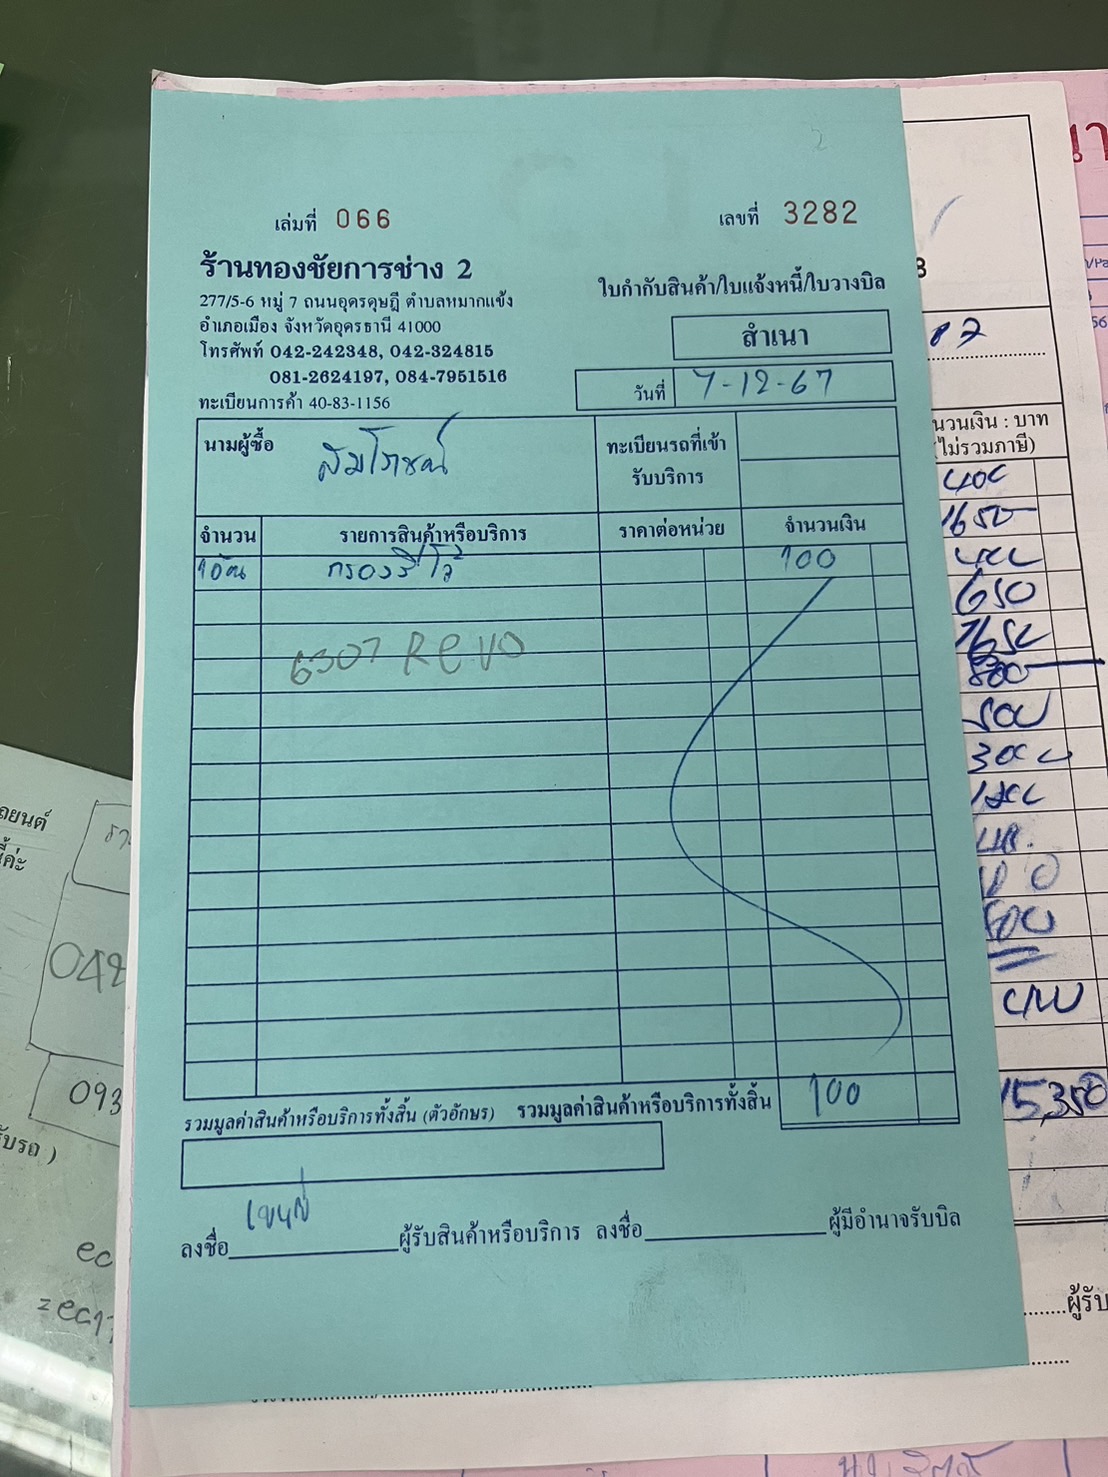 เล่มที่ 066
เลขที่ 3282
ร้านทองชัยการช่าง 2
277/5-6 หมู่ 7 ถนนอุดรดุษฎี ตำบลหมากแข้ง
อำเภอเมือง จังหวัดอุดรธานี 41000
โทรศัพท์ 042-242348, 042-324815
081-2624197, 084-7951516
ทะเบียนการค้า 40-83-1156
ใบกำกับสินค้า/ใบแจ้งหนี้/ใบวางบิล
สำเนา
วันที่ 7-12-67
นามผู้ซื้อ สมโภชน์
ทะเบียนรถที่เข้า
รับบริการ
จำนวน รายการสินค้าหรือบริการ ราคาต่อหน่วย จำนวนเงิน
กรองรีโว้ 100
6307 Revo
รวมมูลค่าสินค้าหรือบริการทั้งสิ้น (ตัวอักษร) รวมมูลค่าสินค้าหรือบริการทั้งสิ้น 100
ลงชื่อ ผู้รับสินค้าหรือบริการ ลงชื่อ ผู้มีอำนาจรับบิล
87
นวนเงิน : บาท
(ไม่รวมภาษี)
1650
650
15,350
ผู้รับ
ถยนต์
042
093
รับรถ )